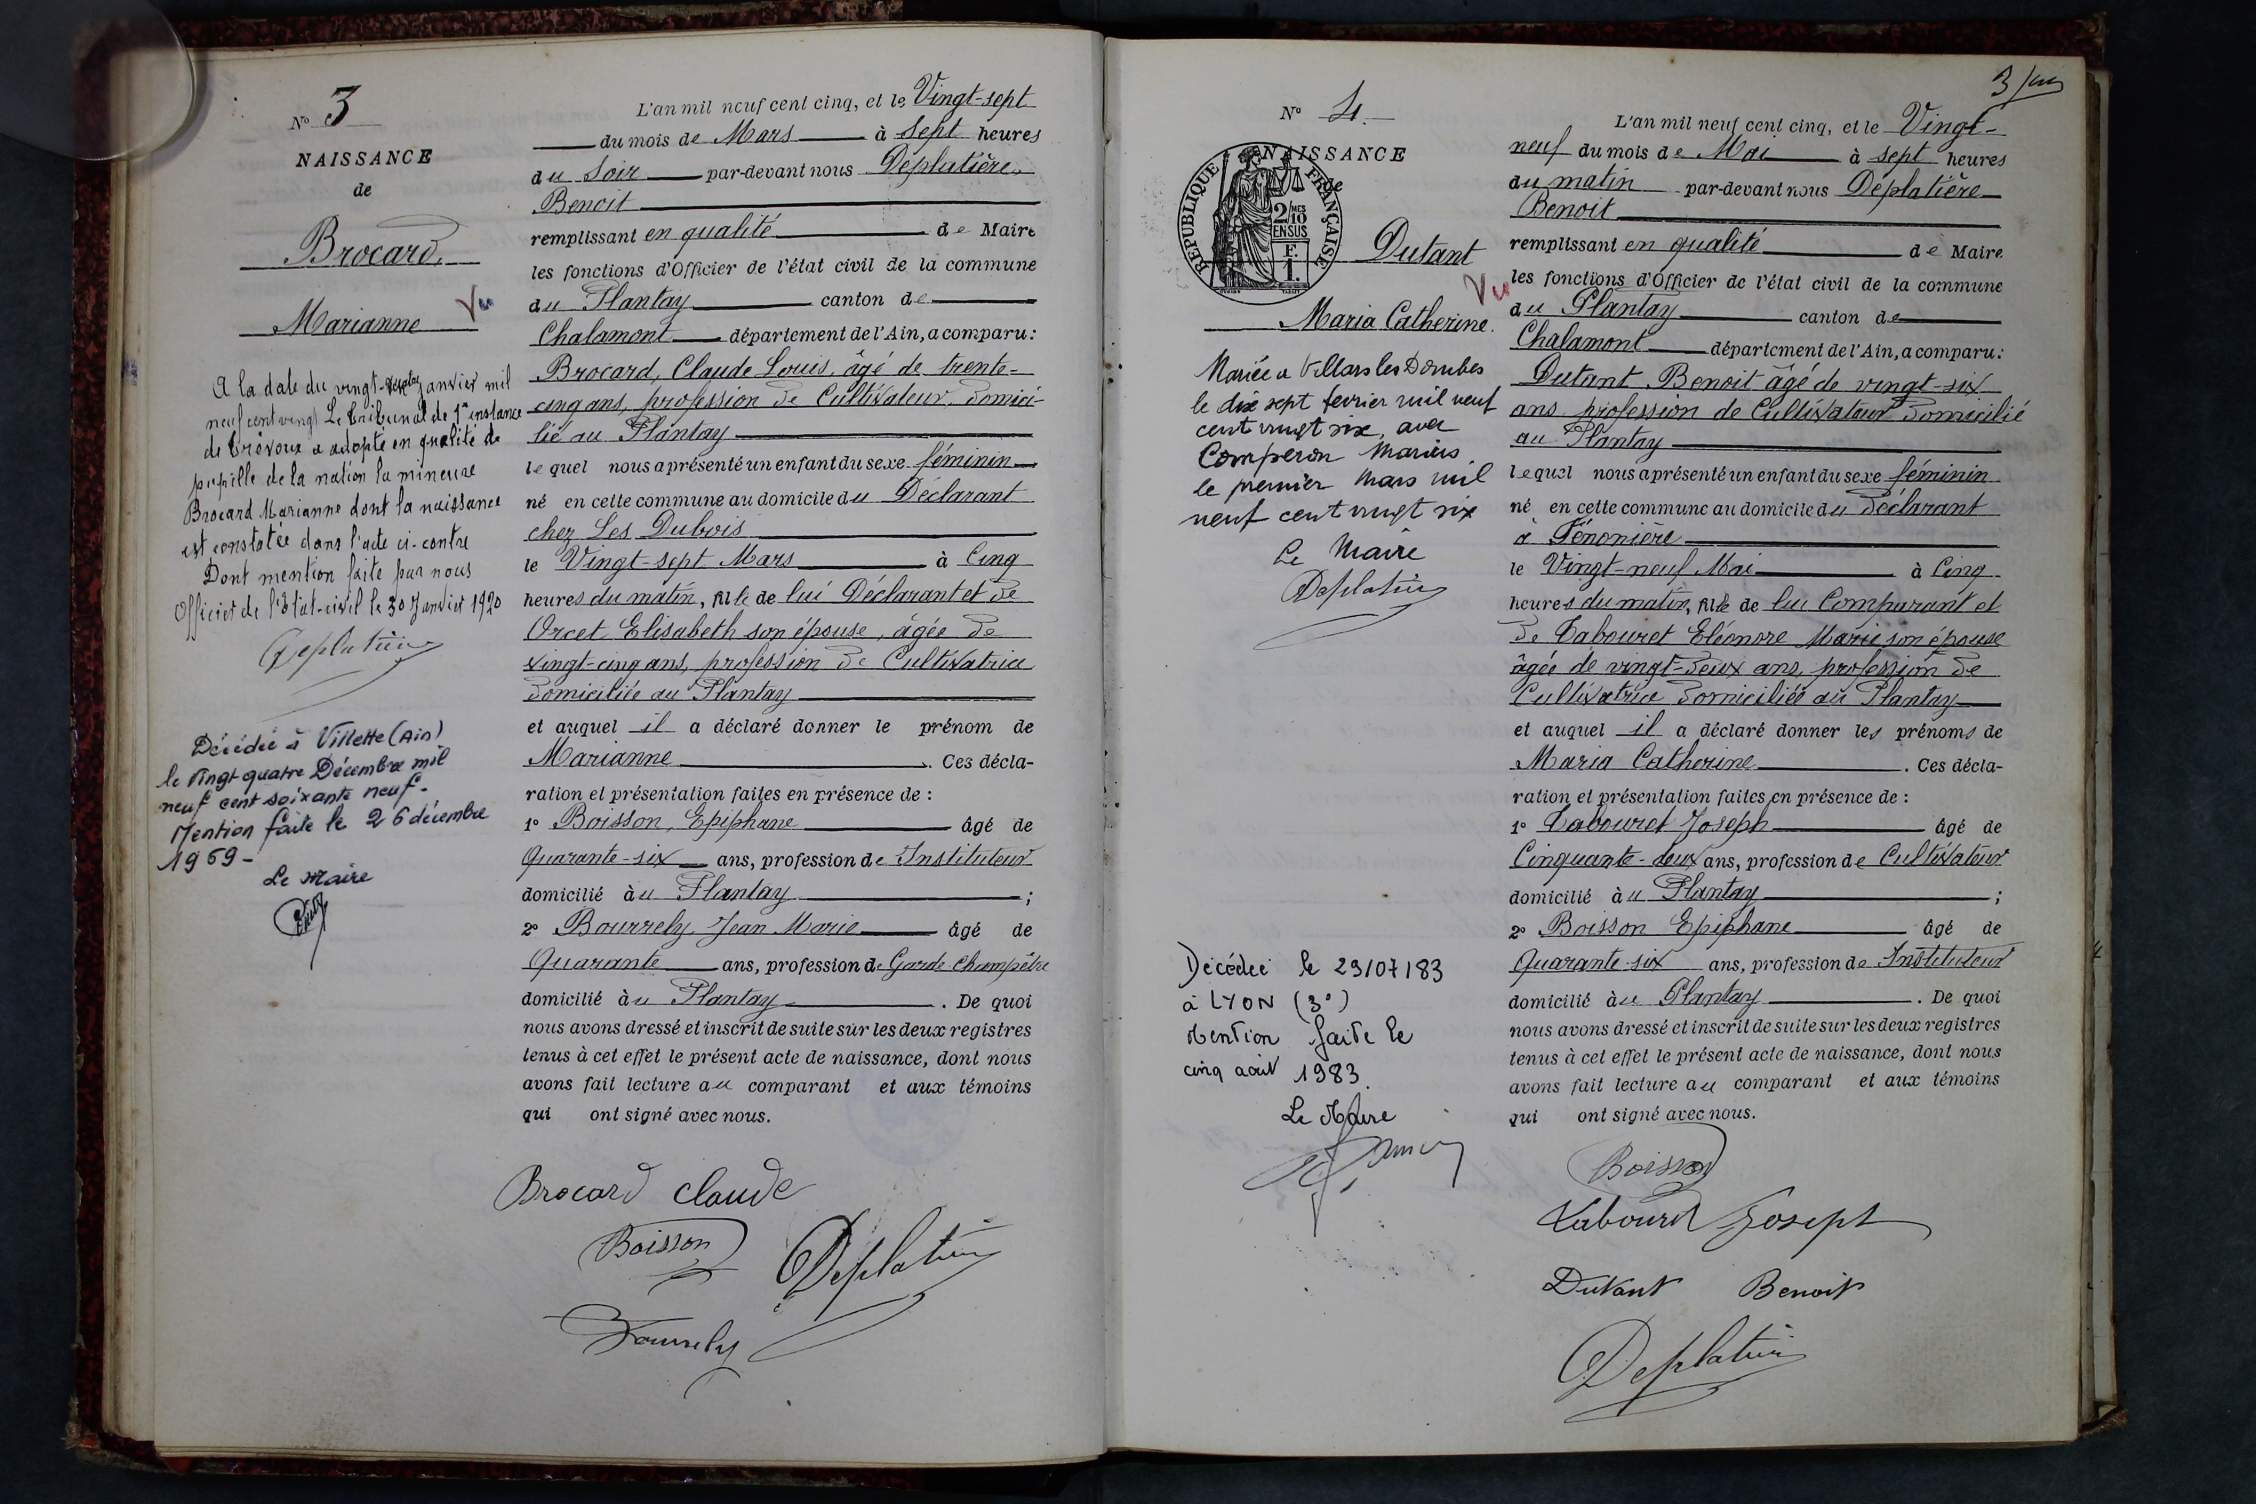 N° 3
NAISSANCE
de
Brocard
Marianne
Vu
A la date du vingt-sept janvier mil
neuf cent vingt Le tribunal de 1re instance
de Trévoux a adopté en qualité de
pupille de la nation la mineure
Brocard Marianne dont la naissance
est constatée dans l'acte ci-contre
Dont mention faite par nous
Officier de l'Etat-civil le 30 Janvier 1920
Deplatière
Décédée à Villette (Ain)
le vingt quatre Décembre mil
neuf cent soixante neuf-
Mention faite le 26 décembre
1969-
Le Maire
L'an mil neuf cent cinq, et le Vingt-sept
du mois de Mars à Sept heures
du Soir par-devant nous Déplatière
Benoit
remplissant en qualité de Maire
les fonctions d'Officier de l'état civil de la commune
du Plantay canton de
Chalamont département de l'Ain, a comparu:
Brocard, Claude Louis, âgé de trente-
cinq ans, profession de Cultivateur, domici-
lié au Plantay
lequel nous a présenté un enfant du sexe féminin
né en cette commune au domicile du Déclarant
chez Les Dubois
le Vingt-sept Mars à Cinq
heures du matin, fille de lui Déclarant et de
Orcet Elisabeth son épouse, âgée de
vingt-cinq ans, profession de Cultivatrice
domiciliée au Plantay
et auquel il a déclaré donner le prénom de
Marianne. Ces décla-
ration et présentation faites en présence de :
1° Boisson, Epiphane âgé de
Quarante-six ans, profession de Instituteur
domicilié au Plantay ;
2° Bourrely, Jean Marie âgé de
Quarante ans, profession de Garde Champêtre
domicilié au Plantay. De quoi
nous avons dressé et inscrit de suite sur les deux registres
tenus à cet effet le présent acte de naissance, dont nous
avons fait lecture au comparant et aux témoins
qui ont signé avec nous.
Brocard Claude
Boisson
Deplatière
Bourrely
3
N° 4
NAISSANCE
de
RÉPUBLIQUE FRANÇAISE
2/10 MES
EN SUS
F.
1.
Dutant
Maria Catherine.
Vu
Mariée à Villars les Dombes
le dix sept fevrier mil neuf
cent vingt six, avec
Comperon Marius
le premier Mars mil
neuf cent vingt six
Le Maire
Deplatière
Décédée le 29/07/83
à LYON (3°)
Mention faite le
cinq août 1983.
Le Maire
L'an mil neuf cent cinq, et le Vingt-
neuf du mois de Mai à sept heures
du matin par-devant nous Déplatière
Benoit
remplissant en qualité de Maire
les fonctions d'Officier de l'état civil de la commune
du Plantay canton de
Chalamont département de l'Ain, a comparu:
Dutant Benoit âgé de vingt-six
ans profession de Cultivateur domicilié
au Plantay
lequel nous a présenté un enfant du sexe féminin
né en cette commune au domicile du Déclarant
à Fénonière
le Vingt-neuf Mai à Cinq
heures du matin, fille de lui Comparant et
de Tabouret Eléonore Marie son épouse
âgée de vingt-deux ans, profession de
Cultivatrice domiciliée au Plantay
et auquel il a déclaré donner les prénoms de
Maria Catherine. Ces décla-
ration et présentation faites en présence de :
1° Tabouret Joseph âgé de
Cinquante-deux ans, profession de Cultivateur
domicilié au Plantay ;
2° Boisson Epiphane âgé de
Quarante-six ans, profession de Instituteur
domicilié au Plantay. De quoi
nous avons dressé et inscrit de suite sur les deux registres
tenus à cet effet le présent acte de naissance, dont nous
avons fait lecture au comparant et aux témoins
qui ont signé avec nous.
Boisson
Tabouret Joseph
Dutant Benoit
Deplatière